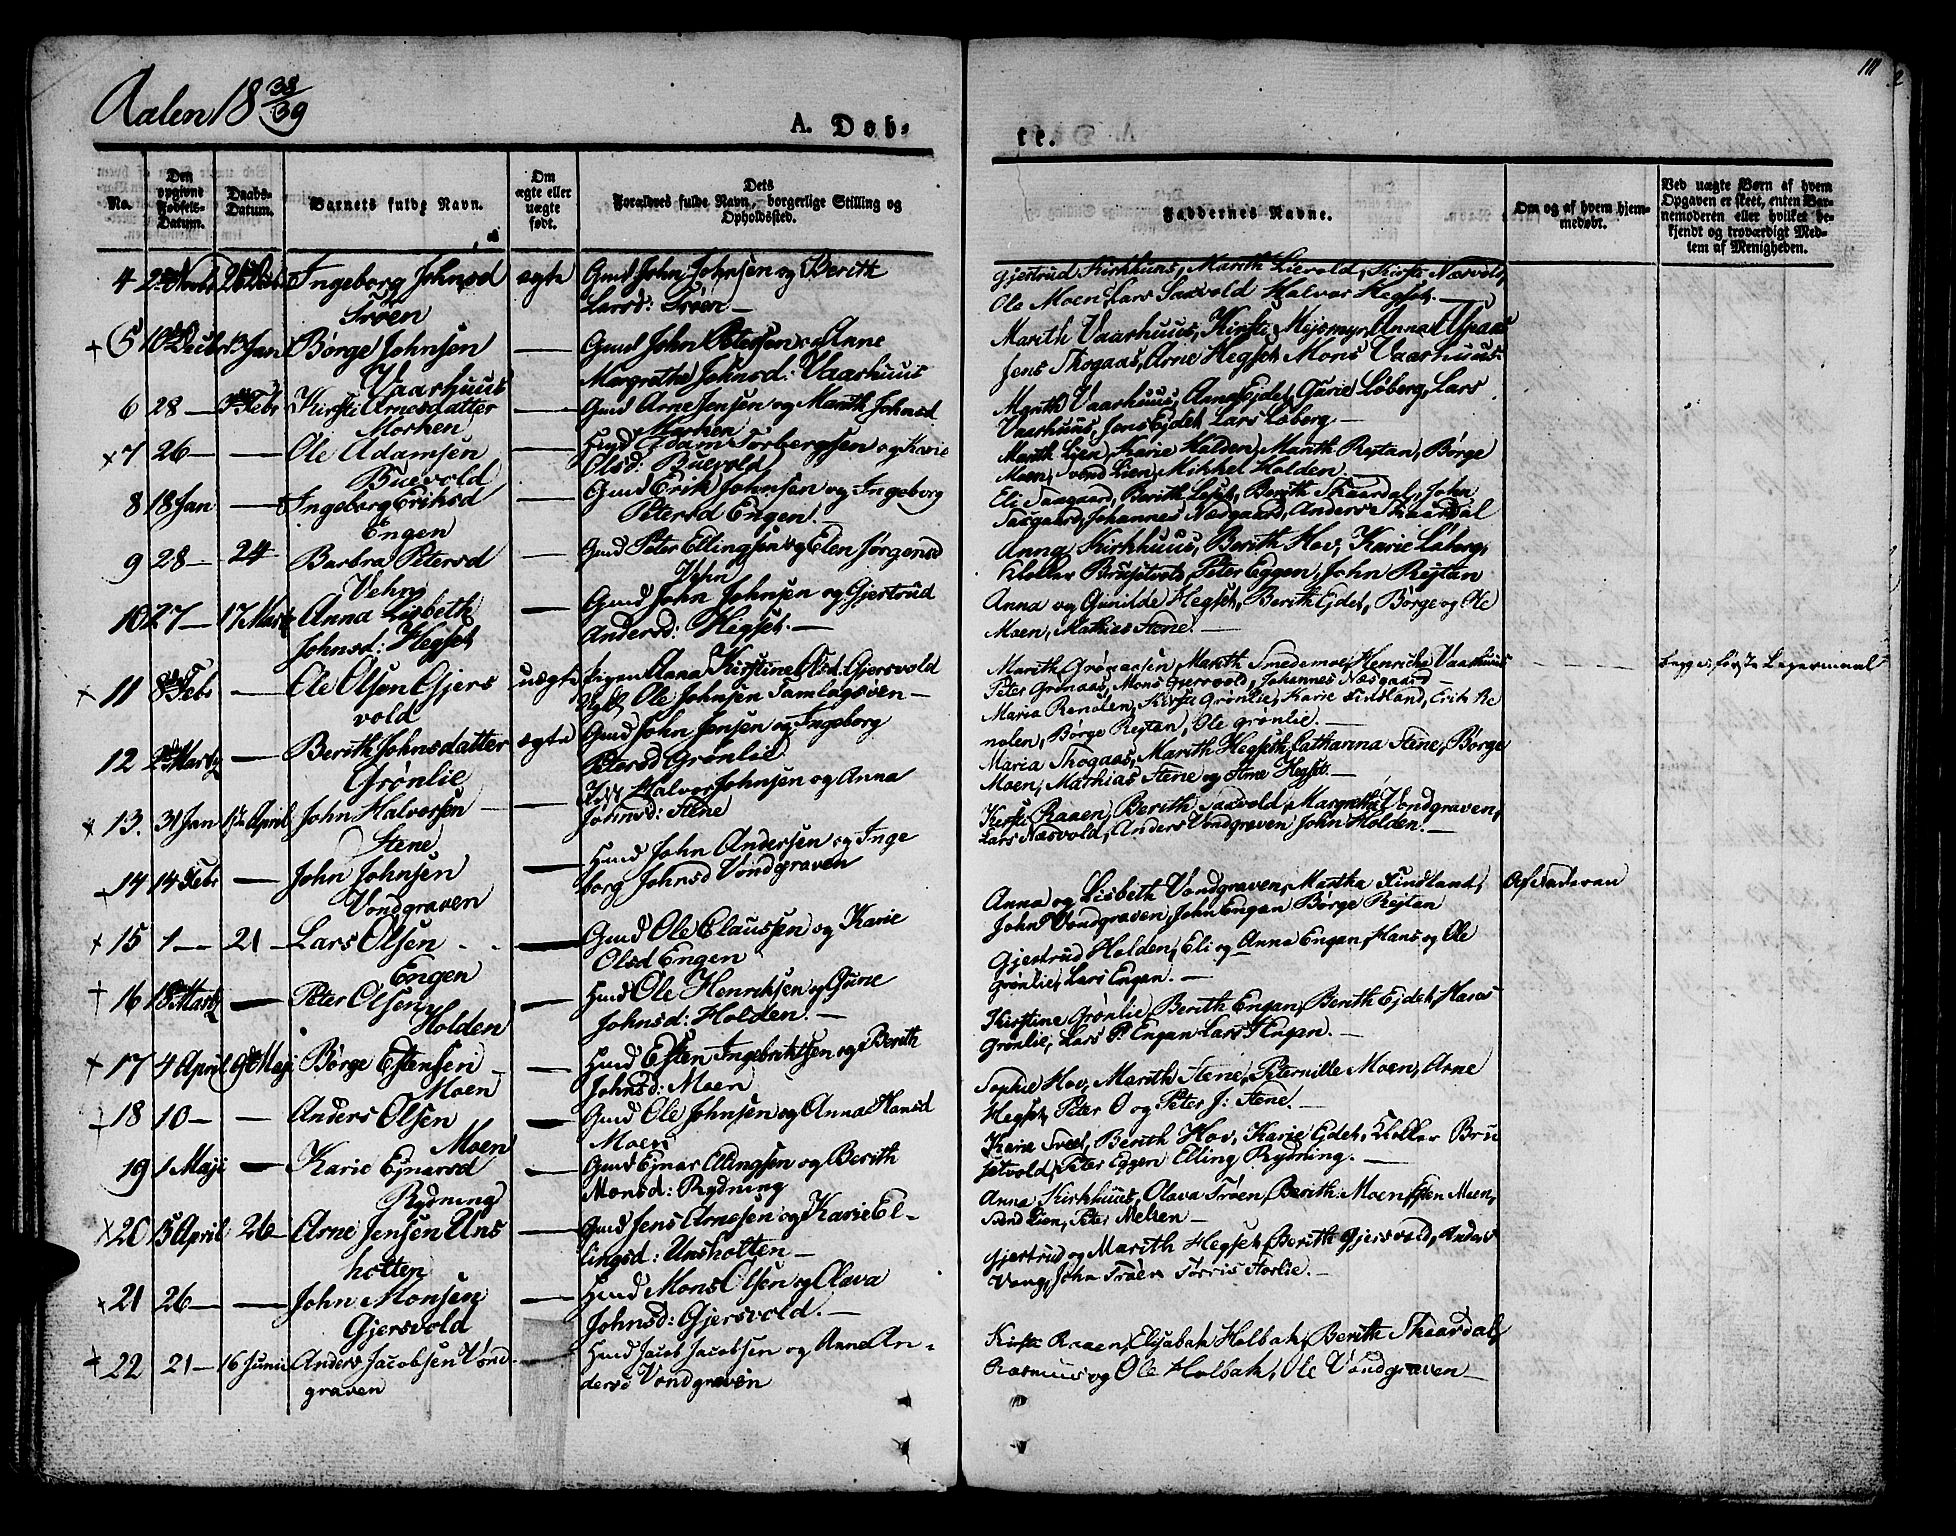 Aalen 18 38/39
A. Døb-
te.
111
2
No.
Den opgivne Fødsels-Datum.
Daabs-Datum.
Barnets fulde Navn.
Om ægte eller uægte født.
Dets Forældres fulde Navn, borgerlige Stilling og Opholdssted.
Faddernes Navne.
Om og af hvem hjemmedøbt.
Ved uægte Børn af hvem Opgaven er skeet, enten Barnemoderen eller hvilket bekjendt og troværdigt Medlem af Menigheden.
4 26 Ingeborg Johnsd ægte Gmd John Johnsen og Berith
Gjertrud Kirkhuus, Marith Lievold, Kirsti Næsvold,
Trøen Larsd: Trøen —
Ole Moen, Lars Saxvold Halvor Hegset. —
+ 5 10 Decbr 13 Jan Børge Johnsen — Gmd John Petersen og Anne
Marith Vaarhuus, Kirsti Anna
Vaarhuus Margrethe Johnsd: Vaarhuus
Jens Thogaas, Arne Hegset Mons Vaarhuus
6 28 — 3 Febr Kirsti Arnesdatter — Gmd Arne Jensen og Marith Johnsd
Marith Vaarhuus, Anna Ejdet, Gurie Løberg, Lars
Morken Morken
Vaarhuus, Jens Ejdet Lars Løberg —
x 7 26 — — Ole Adamsen — Adam Torbergsen og Karie
Marith Lien, Karie Holden, Marith Rejtan, Børge
Buevold Olsd: Buevold
Moen, Svend Lien, Mikkel Holden —
8 18 Jan — Ingeborg Eriksd — Gmd Erik Johnsen og Ingeborg
Eli Aasgaard, Berith Leset, Berith Skaardal, John
Engen Petersd Engen. —
Aasgaard, Johannes Næsgaard, Anders Skaardal
9 28 — 24 Barbra Petersd — Gmd Peter Ellingsen og Elen Jørgensd
Anna Kirkhuus, Berith Hov, Karie Løberg,
Vehn Vehn
Kloller Brusetvold, Peter Eggen, John Rejtan
10 27 — 17 Marts Anna Lisbeth — Gmd John Johnsen og Gjertrud
Anna og Gunilde Hegset, Berith Ejdet, Børge og Ole
Johnsd: Hegset Andersd: Hegset. —
Moen, Mathias Stene. —
x 11 8 Febr — Ole Olsen Gjers uægte Pigen Anna Kirstine Olsd: Gjersvold
Marith Grønaasen, Marith Smedemoe, Henrich Vaarhuus — begges første Lejermaal
vold Ole Johnsen Tamlagsøen —
Peter Grønaas, Mons Gjersvold, Johannes Næsgaard —
12 2 Marts — Berith Johnsdatter ægte Gmd John Jensen og Ingeborg
Maria Renolen, Kirsti Grønlie, Karie Findland, Erik Re
Grønlie Petersd Grønlie
nolen, Børge Rejtan, Ole Grønlie. —
x 13. 31 Jan 1 April John Halvorsen — Halvor Johnsen og Anna
Maria Thogaas, Marith Hegset, Catharina Stene, Børge
Stene Johnsd: Stene
Moen, Mathias Stene og Arne Hegset. —
+ 14 14 Febr — John Johnsen — Hmd John Andersen og Inge
Kirsti Raaen, Berith Saxvold, Margrethe Vondgraven,
Vondgraven borg Johnsd Vondgraven
Lars Næsvold, Anders Vondgraven John Holden. —
+ 15 1 — 21 — Lars Olsen — Gmd Ole Claussen og Karie
Anna og Lisbeth Vondgraven, Martha Findland, Af Faderen
Engen Olsd Engen
John Vondgraven, John Engan Børge Rejtan
+ 16 18 Marts — Peter Olsen — Hmd Ole Henriksen og Gune
Gjertrud Holden, Eli og Anna Engan, Hans og Ole
Holden Johnsd: Holden. —
Grønlie, Lars Engan. —
+ 17 4 April 9 Maj Børge Estensen — Hmd Esten Ingebrigtsen og Berith
Kirstine Grønlie, Berith Engan, Berith Ejdet, Hans
Moen Johnsd: Moen
Grønlie, Lars P. Engan Lars Engan. —
18 10 — — Anders Olsen — Gmd Ole Johnsen og Anna Hansd
Sophie Hov, Marith Stene, Peternille Moen, Arne
Moen Moen
Hegset, Peter O og Peter J: Stene. —
19 1 Maji — Karie Ejnarsd — Gmd Ejnar Ellingsen og Berith
Karie Sveel, Berith Hov, Karie Ejdet, Kloller Bru
Rydning Monsd: Rydning
setvold, Peter Eggen Elling Rydning. —
x 20 15 April 26 — Arne Jensen Uns — Gmd Jens Arnesen og Karie El-
Anna Kirkhuus, Olava Trøen, Berith Moen, Esten Moen,
holten lingsd: Unsholten —
Svend Lien, Peter Nelsen —
x 21 26 — — John Monsen — Hmd Mons Olsen og Olava
Gjertrud og Marith Hegset, Berith Gjersvold, Anders
Gjersvold Johnsd: Gjersvold. —
Vang, John Trøen Torris Aarlie. —
+ 22 21 — 16 Junie Anders Jacobsen Vond — Hmd Jacob Jacobsen og Anne An-
Kirsti Raaen, Elisabeth Holbak, Berith Skaardal,
graven dersd Vondgraven
Rasmus og Ole Holbak, Ole Vondgraven —